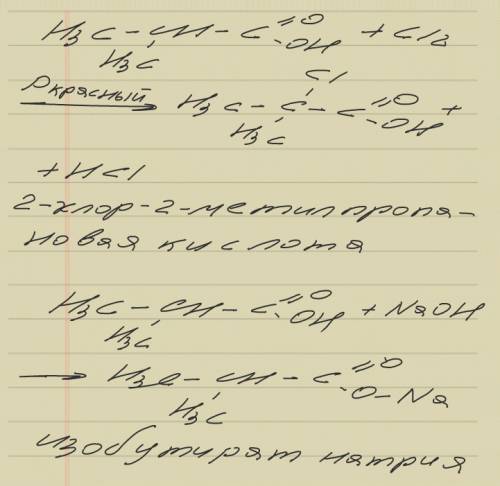 H3C - CH - C =O -OH + Cl2
H3C
P красный → Cl
H3C - C - C =O -OH +
H3C
+ HCl
2-хлор-2-метилпропа-
новая кислота
H3C - CH - C =O -OH + NaOH
H3C
→ H3C - CH - C =O -O-Na
H3C
изобутират натрия